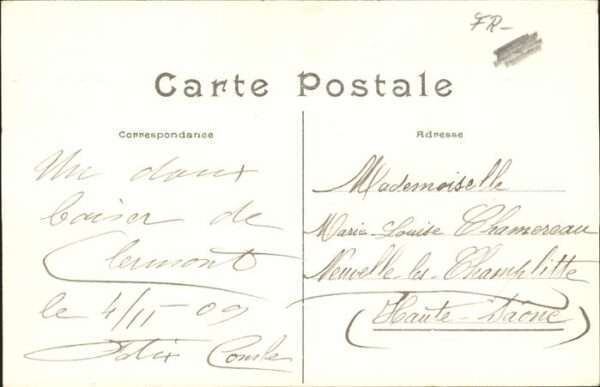 FR-
Carte Postale
Correspondance
Un doux
baiser de
Clermont
le 4/II 09
Félix
Adresse
Mademoiselle
Marie-Louise Chamereau
Neuvelle-les-Champlitte
(Haute-Saône)